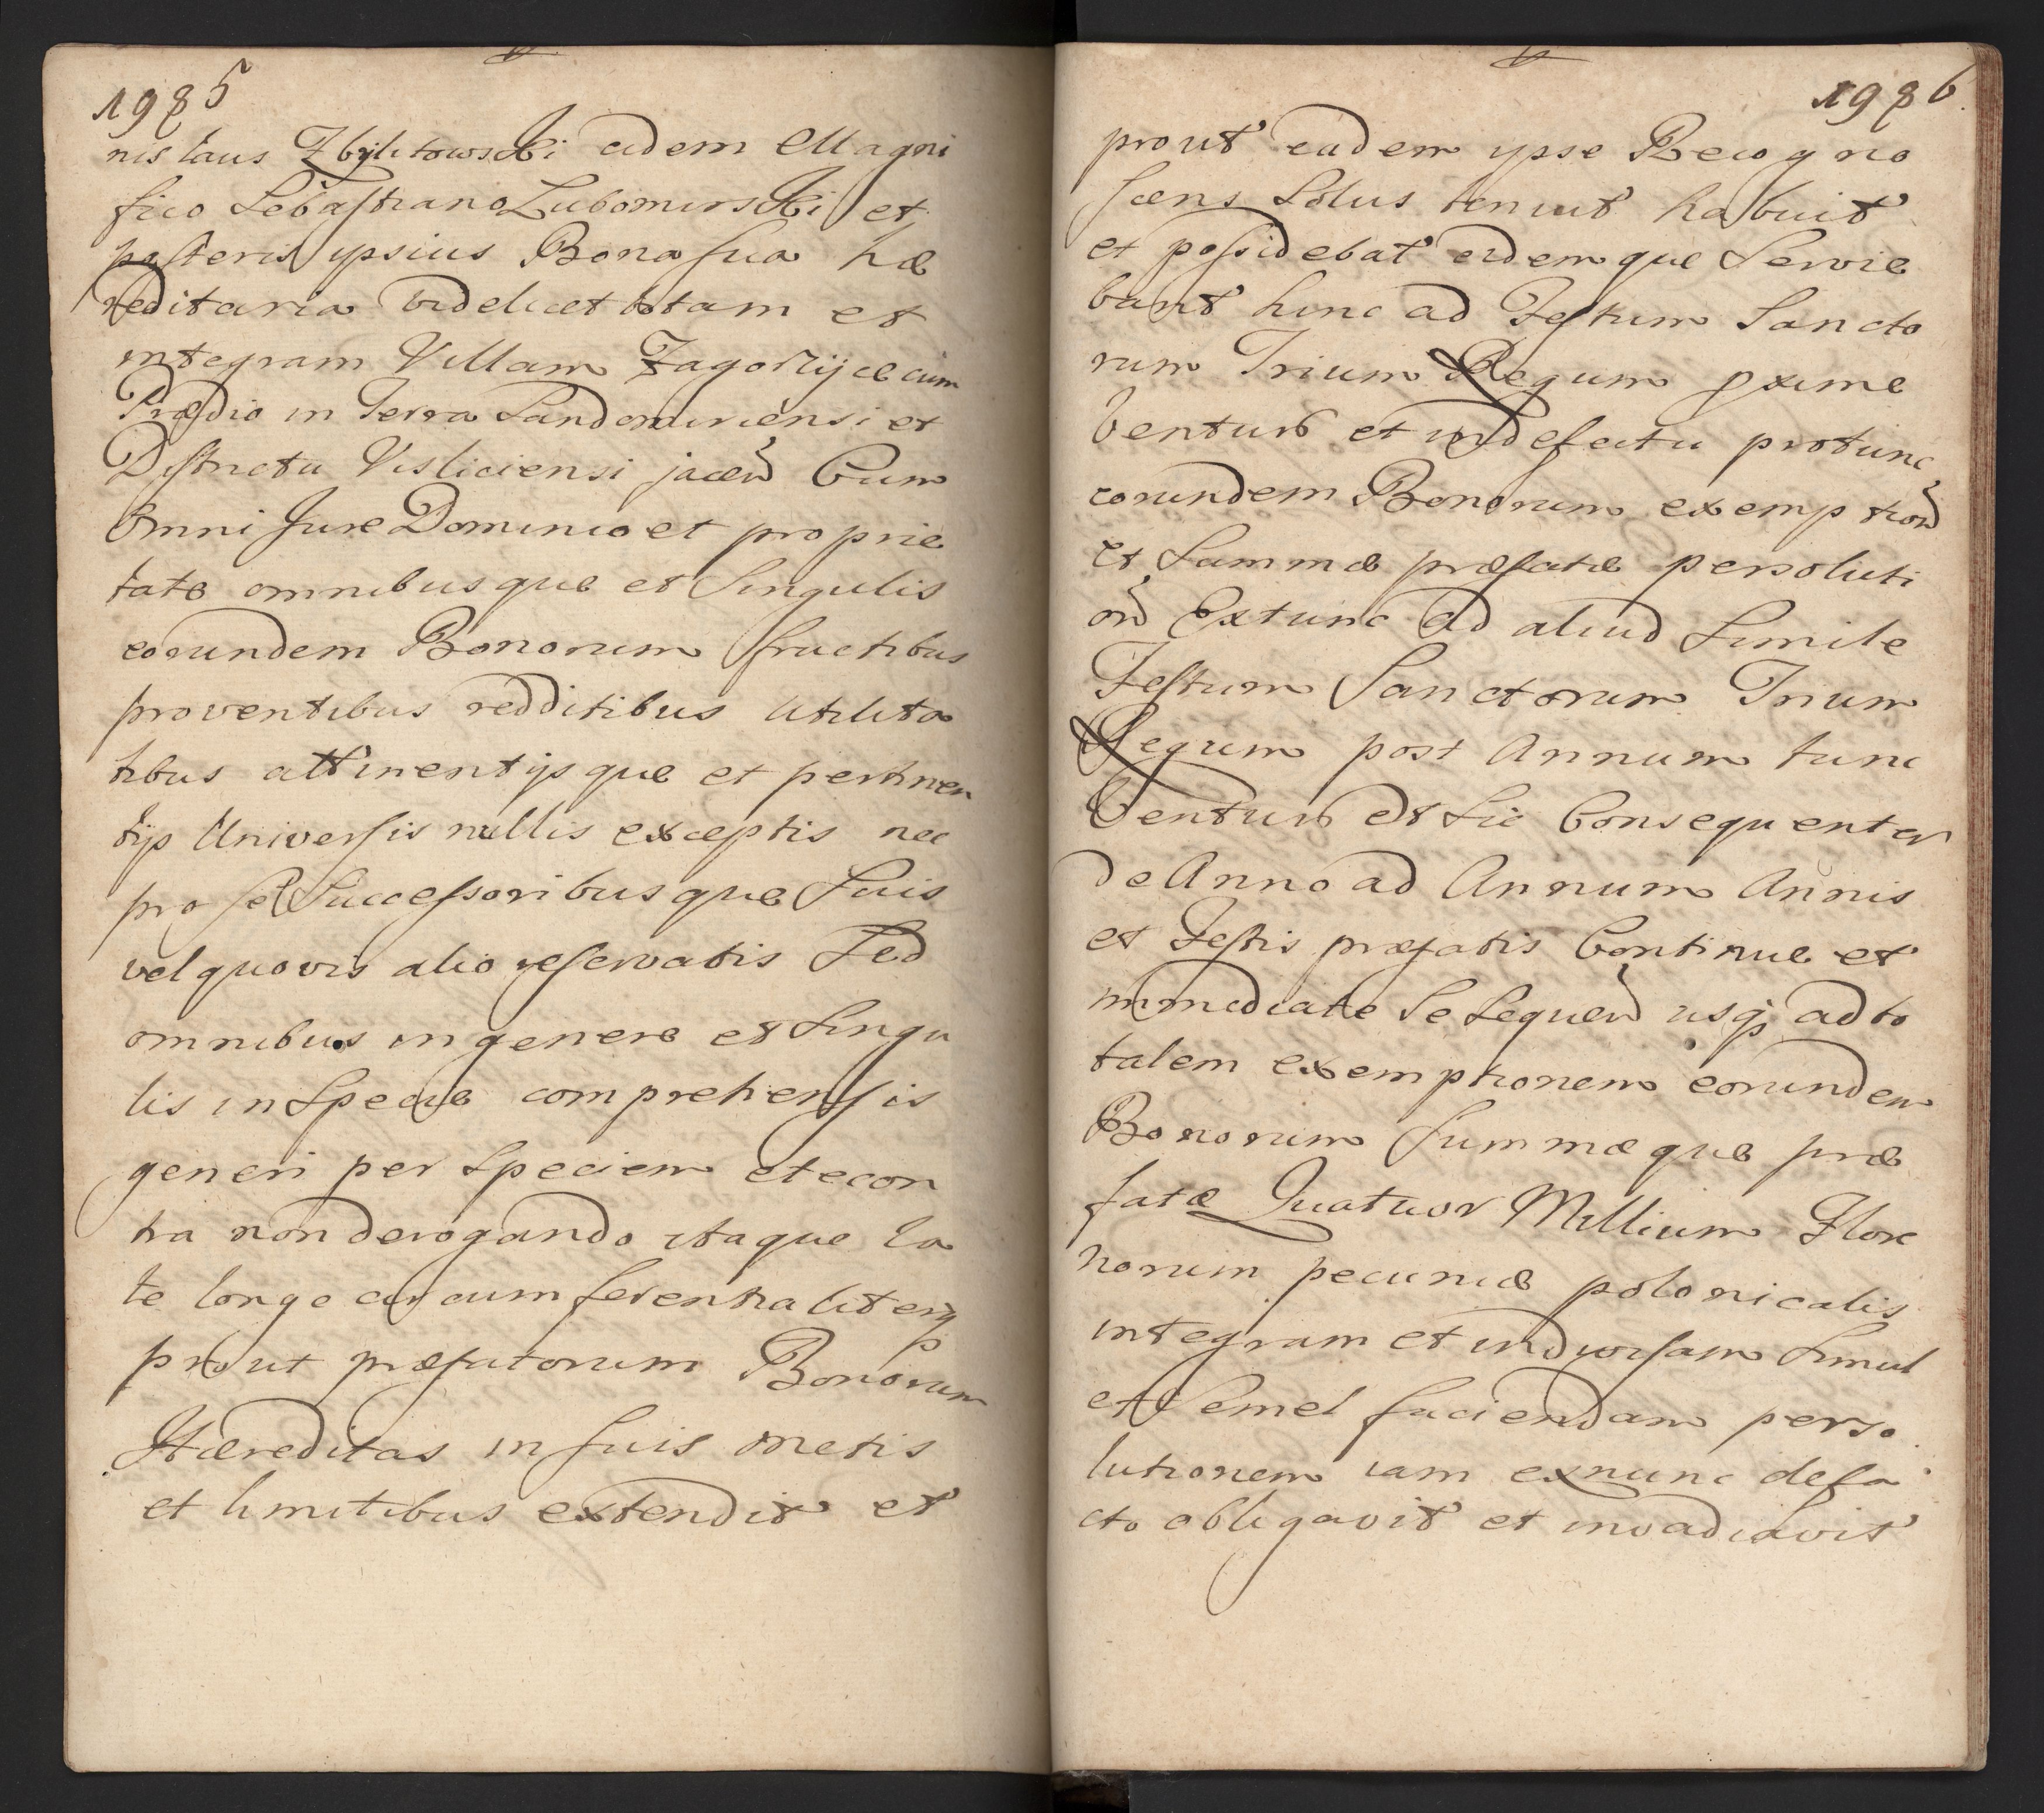 1985
nislaus Zbylitowski eidem Magni
fico Sebastiano Lubomirski et
posteris ypsius Bona sua hæ
reditaria videlicet totam et
integram Villam Zagorzyce cum
Prædio in Terra Sandomiriensi et
Districtu Visliciensi jacen Cum
Omni Jure Dominio et proprie
tate omnibusque et Singulis
eorundem Bonorum fructibus
proventibus redditibus utilita
tibus attinentijsque et pertinen
tijs Universis nullis exceptis nec
pro se Successoribusque Suis
vel quovis alio reservatis Sed
omnibus in genere et Singu
lis in Specie comprehensis
generi per Speciem et econ
tra non derogando itaque la
te longe circumferentialiterq
prout præfatorum Bonorum
Hæreditas in suis metis
et limitibus extendit et
1986
prout eadem ypse Recogno
scens Solus tenuit habuit
et possidebat eidemque Servie
bant hinc ad Festum Sancto
rum Trium Regum pxime
Ventur et in defectu protunc
eorundem Bonorum exemption
et Summæ præfatæ persoluti
on Extunc ad aliud Simile
Festum Sanctorum Trium
Regum post Annum tunc
Ventur et Sic Consequenter
de Anno ad Annum Annis
et Festis præfatis Continue et
immediate Se Sequen usq ad to
talem exemptionem eorundem
Bonorum Summæque præ
fatæ Quatuor Millium Flore
norum pecuniæ polonicalis
integram et indivisam Simul
et Semel faciendam perso
lutionem iam exnunc de fa
cto obligavit et invadiavit